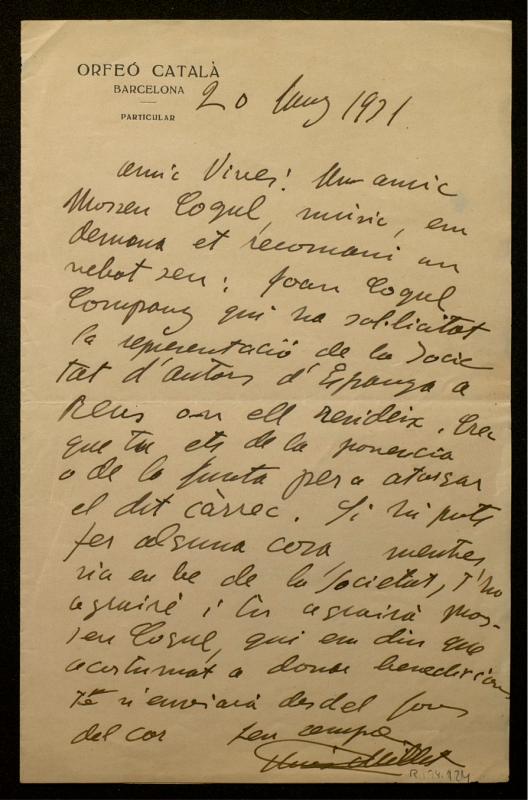 ORFEÓ CATALÀ
BARCELONA
PARTICULAR
20 Juny 1921
Amic Vives: Un amic
Mossen Cogul, music, em
demana et recomani un
nebot seu: Joan Cogul
Company qui ha sol·licitat
la representació de la Socie
tat d'autors d'Espanya a
Reus on ell resideix. Crec
que tu ets de la ponencia
o de la Junta per a atorgar
el dit càrrec. Si hi pots
fer alguna cosa mentres
sia en be de la Societat, t'ho
agrairé i t'ho agrairà Mos-
sen Cogul, qui em diu que
acostumat a donar benediccions
te n'enviarà desdel fons
del cor
ton company
Lluis Millet
R. 14.924